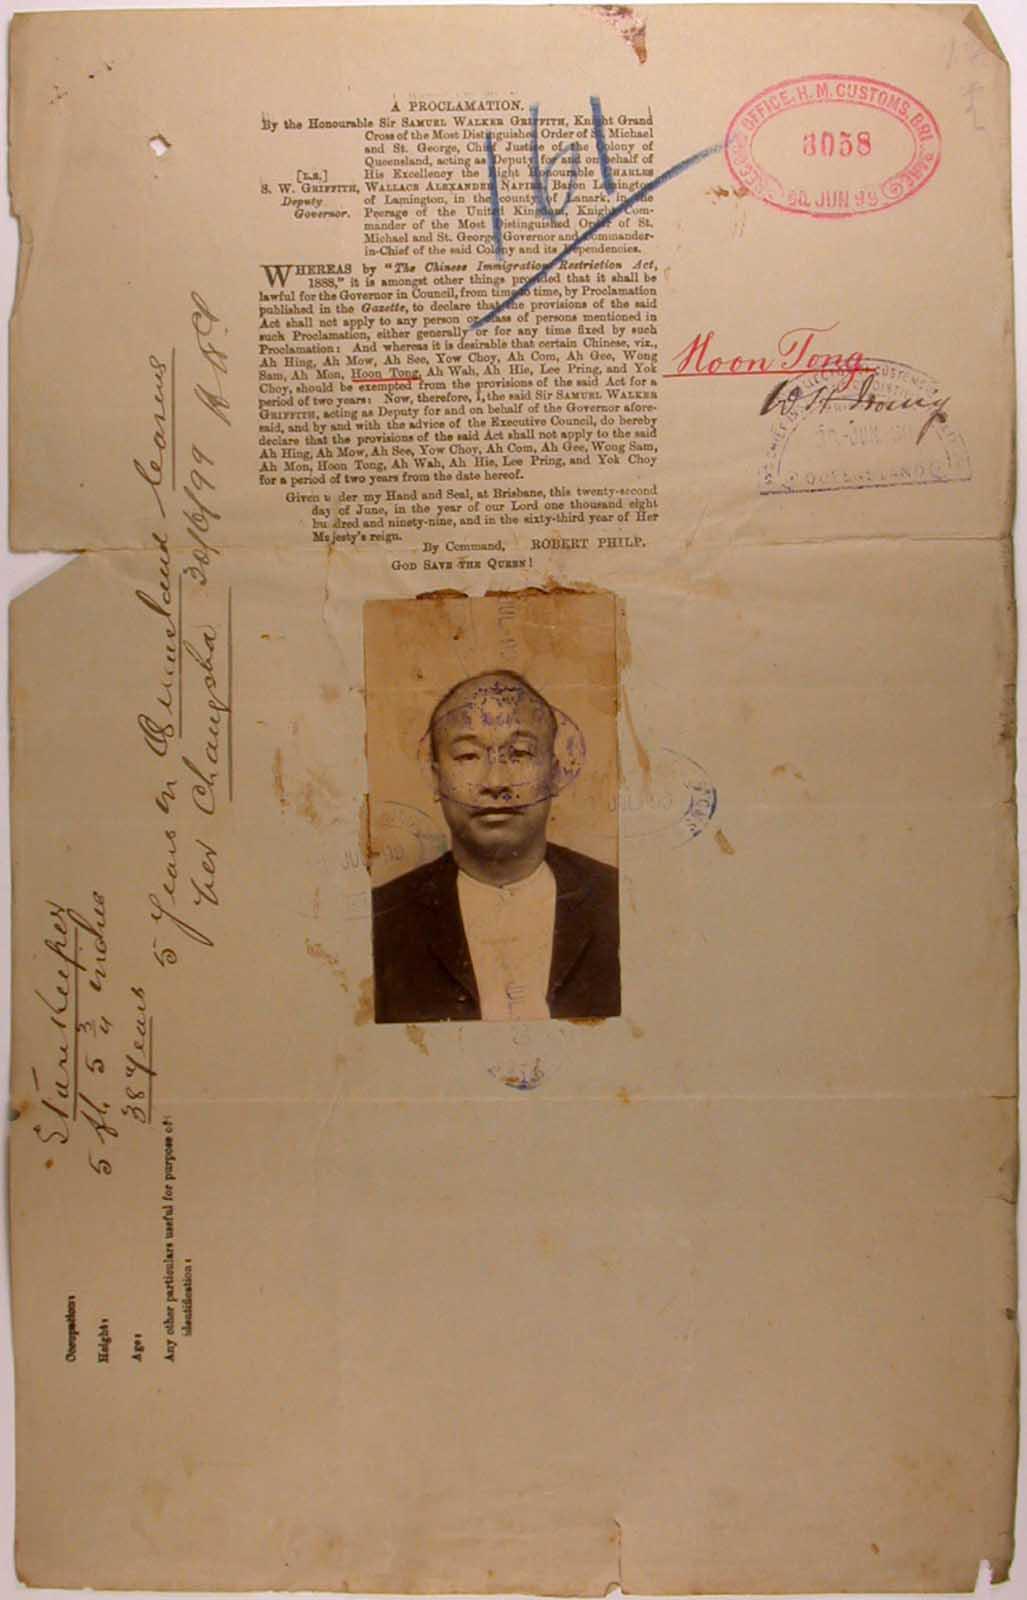 A PROCLAMATION.
By the Honourable Sir SAMUEL WALKER GRIFFITH, Knight Grand
Cross of the Most Distinguished Order of St. Michael
and St. George, Chief Justice of the Colony of
Queensland, acting as Deputy for and on behalf of
[L.S.] His Excellency the Right Honourable CHARLES
S. W. GRIFFITH, WALLACE ALEXANDER NAPIER, Baron Lamington
Deputy of Lamington, in the county of Lanark, in the
Governor. Peerage of the United Kingdom, Knight Com-
mander of the Most Distinguished Order of St.
Michael and St. George, Governor and Commander-
in-Chief of the said Colony and its Dependencies.
WHEREAS by "The Chinese Immigration Restriction Act,
1888," it is amongst other things provided that it shall be
lawful for the Governor in Council, from time to time, by Proclamation
published in the Gazette, to declare that the provisions of the said
Act shall not apply to any person or class of persons mentioned in
such Proclamation, either generally or for any time fixed by such
Proclamation: And whereas it is desirable that certain Chinese, viz.,
Ah Hing, Ah Mow, Ah See, Yow Choy, Ah Com, Ah Gee, Wong
Sam, Ah Mon, Hoon Tong, Ah Wah, Ah Hie, Lee Pring, and Yok
Choy, should be exempted from the provisions of the said Act for a
period of two years: Now, therefore, I, the said Sir SAMUEL WALKER
GRIFFITH, acting as Deputy for and on behalf of the Governor afore-
said, and by and with the advice of the Executive Council, do hereby
declare that the provisions of the said Act shall not apply to the said
Ah Hing, Ah Mow, Ah See, Yow Choy, Ah Com, Ah Gee, Wong Sam,
Ah Mon, Hoon Tong, Ah Wah, Ah Hie, Lee Pring, and Yok Choy
for a period of two years from the date hereof.
Given under my Hand and Seal, at Brisbane, this twenty-second
day of June, in the year of our Lord one thousand eight
hundred and ninety-nine, and in the sixty-third year of Her
Majesty's reign.
By Command, ROBERT PHILP.
GOD SAVE THE QUEEN!
161
OFFICE, H. M. CUSTOMS,
3058
30 JUN 99
Hoon Tong
W H
QUEENSLAND
Occupation: Storekeeper
Height: 5 ft. 5 3/4 inches
Age: 38 Years
Any other particulars useful for purpose of
identification:
5 Years in Queensland leaving
per Changsha 30/6/99